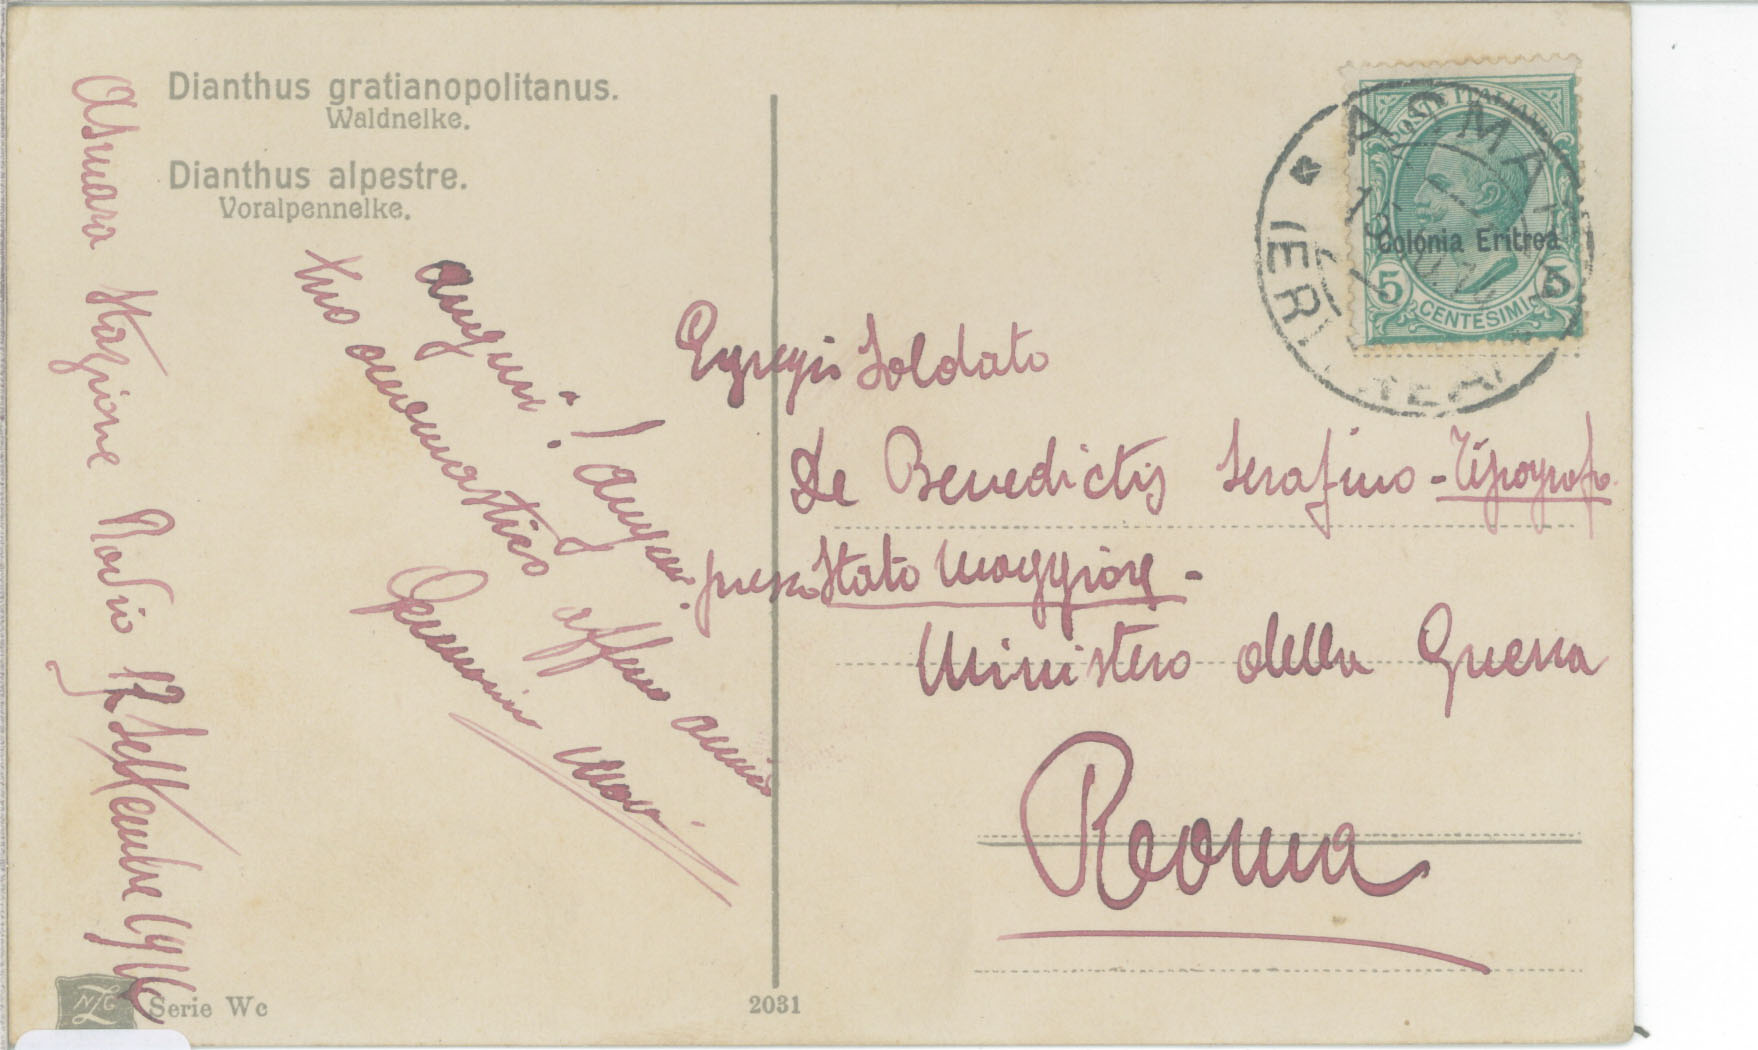 Dianthus gratianopolitanus.
Waldnelke.
Dianthus alpestre.
Voralpennelke.
Asmara Stazione Radio 17 Settembre 1916
Auguri! Auguri
onomastico
affmo amico
Egregio Soldato
De Benedictis Serafino - Tipografo
presso Stato Maggiore -
Ministero della Guerra
Roma
POSTE ITALIANE
Colonia Eritrea
5 CENTESIMI 5
ASMARA
(ERITREA)
NZG
Serie Wc
2031